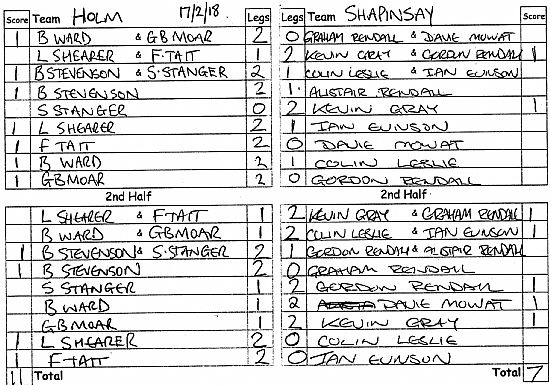 Score Team HOLM 17/2/18. Legs Legs Team SHAPINSAY Score
1 B WARD & GB MOAR 2 0 GRAHAM RENDALL & DAVE MOWAT
L SHEARER & F TAIT 1 2 KEVIN GRAY & GORDON RENDALL 1
1 B STEVENSON & S. STANGER 2 1 COLIN LESLIE & IAN EUNSON
1 B STEVENSON 2 1. ALISTAIR RENDALL
S STANGER 0 2 KEVIN GRAY 1
1 L SHEARER 2 1 IAN EUNSON
1 F TAIT 2 0 DAVIE MOWAT
1 B WARD 2 1 COLIN LESLIE
1 GB MOAR 2 0 GORDON RENDALL
2nd Half 2nd Half
L SHEARER & F TAIT 1 2 KEVIN GRAY & GRAHAM RENDALL 1
B WARD & GB MOAR 1 2 COLIN LESLIE & IAN EUNSON 1
1 B STEVENSON & S. STANGER 2 1 GORDON RENDALL & ALISTAIR RENDALL
1 B STEVENSON 2 0 GRAHAM RENDALL
S STANGER 1 2 GORDON RENDALL 1
B WARD 1 2 DAVIE MOWAT 1
GB MOAR 1 2 KEVIN GRAY 1
1 L SHEARER 2 0 COLIN LESLIE
1 F TAIT 2 0 IAN EUNSON
11 Total Total 7